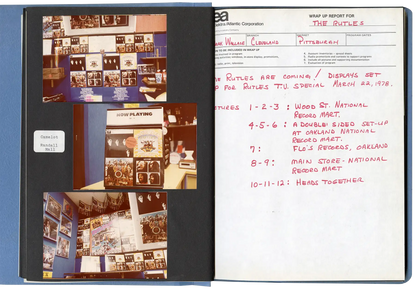 ea
d a Atlantic Corporation
WRAP UP REPORT FOR
THE RUTLES
CLEVELAND
PITTSBURGH
RUTLES ARE COMING / DISPLAYS SET
P FOR RUTLES T.V. SPECIAL MARCH 22, 1978.
TURES 1-2-3 : WOOD ST. NATIONAL
RECORD MART.
4-5-6 : A DOUBLE-SIDED SET-UP
AT OAKLAND NATIONAL
RECORD MART.
7 : FLO'S RECORDS, OAKLAND
8-9 : MAIN STORE - NATIONAL
RECORD MART
10-11-12 : HEADS TOGETHER
NOW PLAYING
Camelot
Randall
Mall